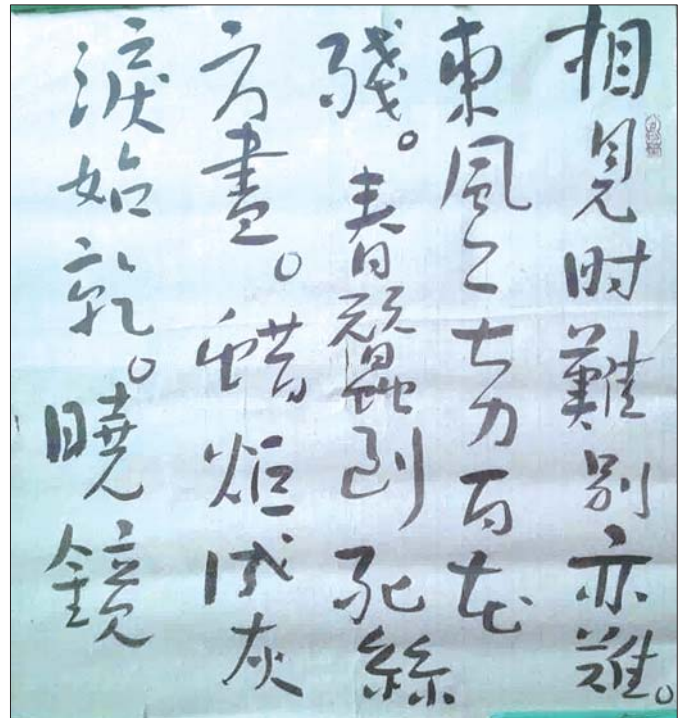 相見时難別亦難。
東風無力百花
殘。春蠶到死絲
方盡。蜡炬成灰
淚始乾。曉鏡